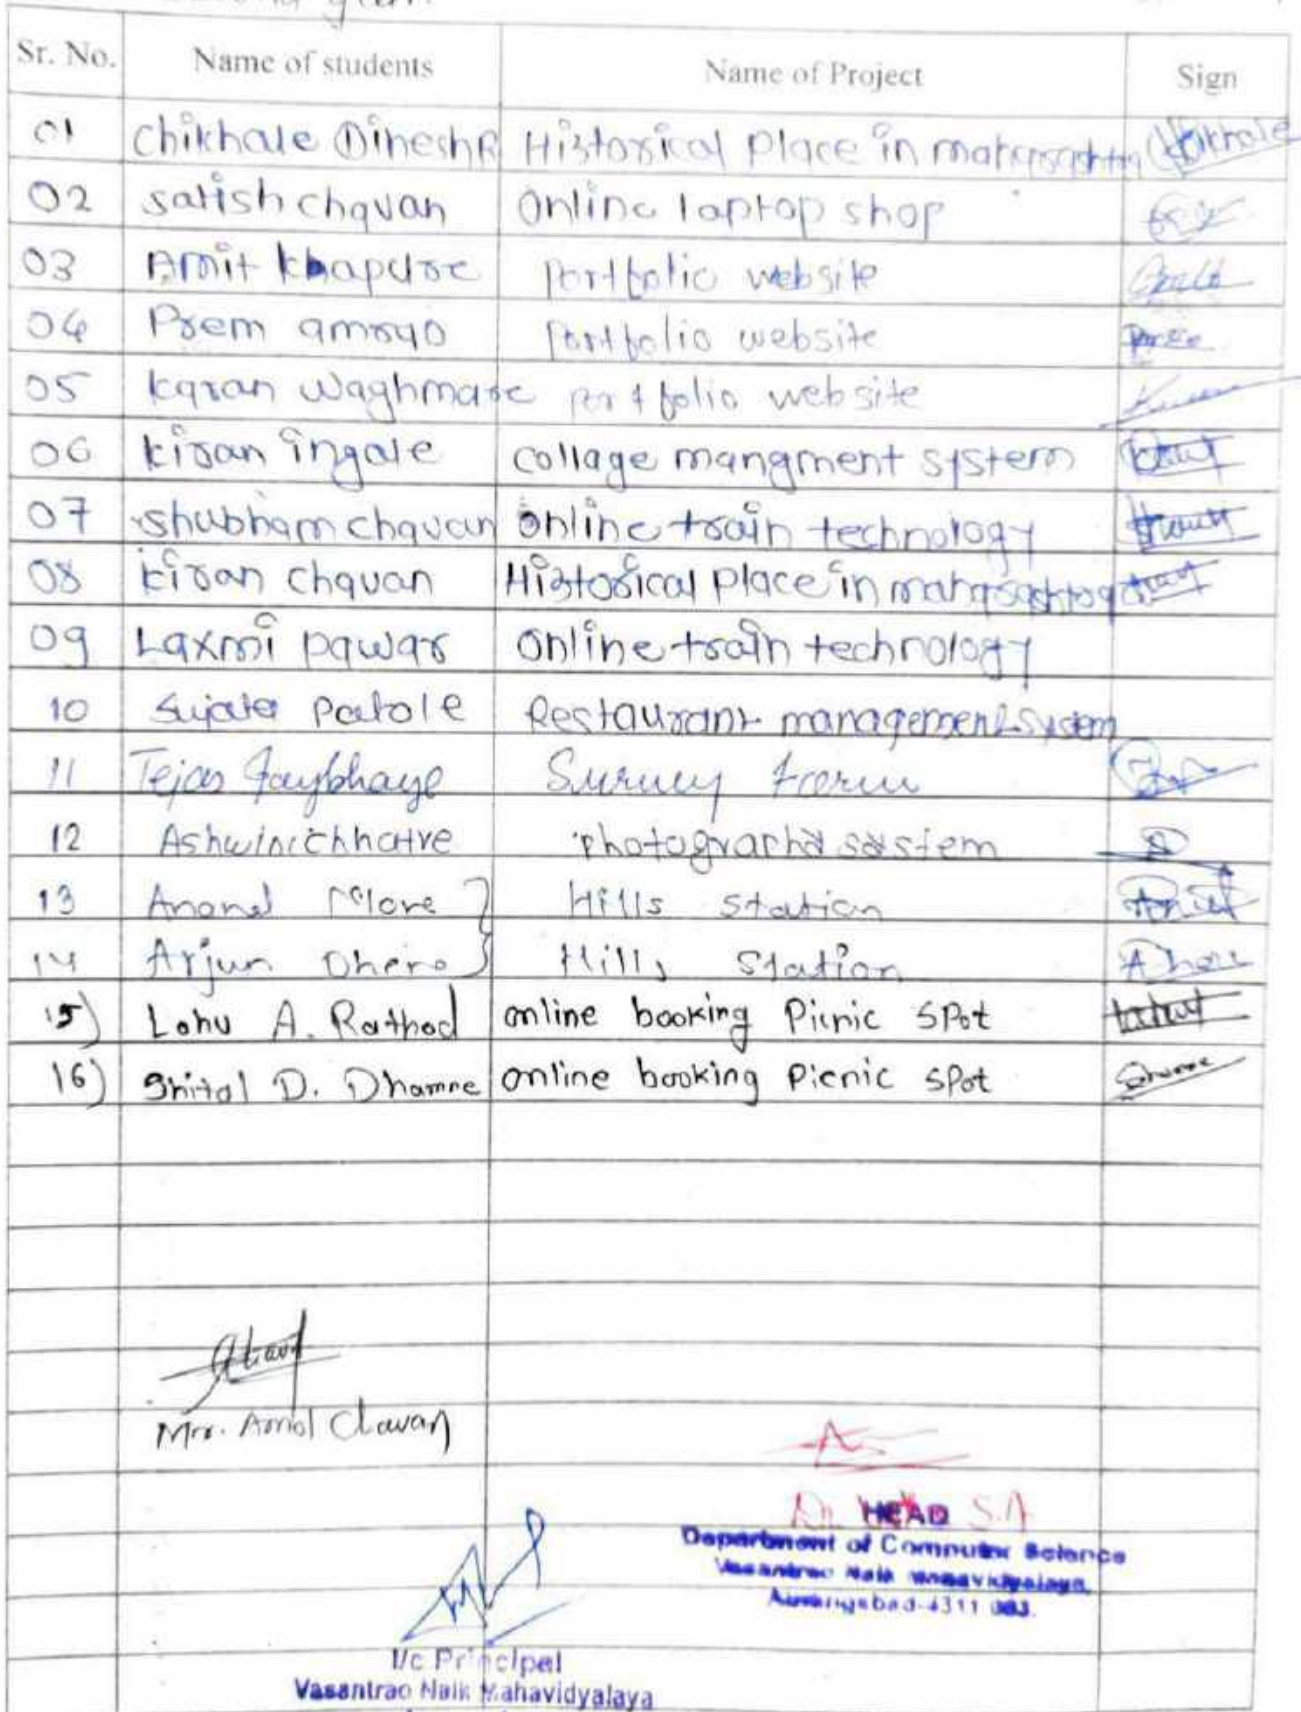 Sr. No. Name of students Name of Project Sign
01 Chikhale Dinesh R Historical place in maharashtra Chikhale
02 Satish chavan Online laptop shop
03 Amit khapure Portfolio website
04 Prem amrao Portfolio website
05 karan waghmare portfolio website
06 kiran ingale collage mangment system
07 shubham chavan online train technology
08 kiran chavan Historical place in maharashtra
09 Laxmi pawar online train technology
10 Sujata Patole Restaurant management system
11 Tejas Jaybhaye Survey Form
12 Ashwini chhatre photography system
13 Anand More } Hills Station
14 Arjun Dhere } Hills Station
15) Lahu A. Rathod online booking Picnic SPot
16) Shital D. Dhamne online booking Picnic SPot
Mrs. Amol Chavan
HEAD
Department of Computer Science
Vasantrao Naik Mahavidyalaya,
Aurangabad-4311 003.
I/c Principal
Vasantrao Naik Mahavidyalaya